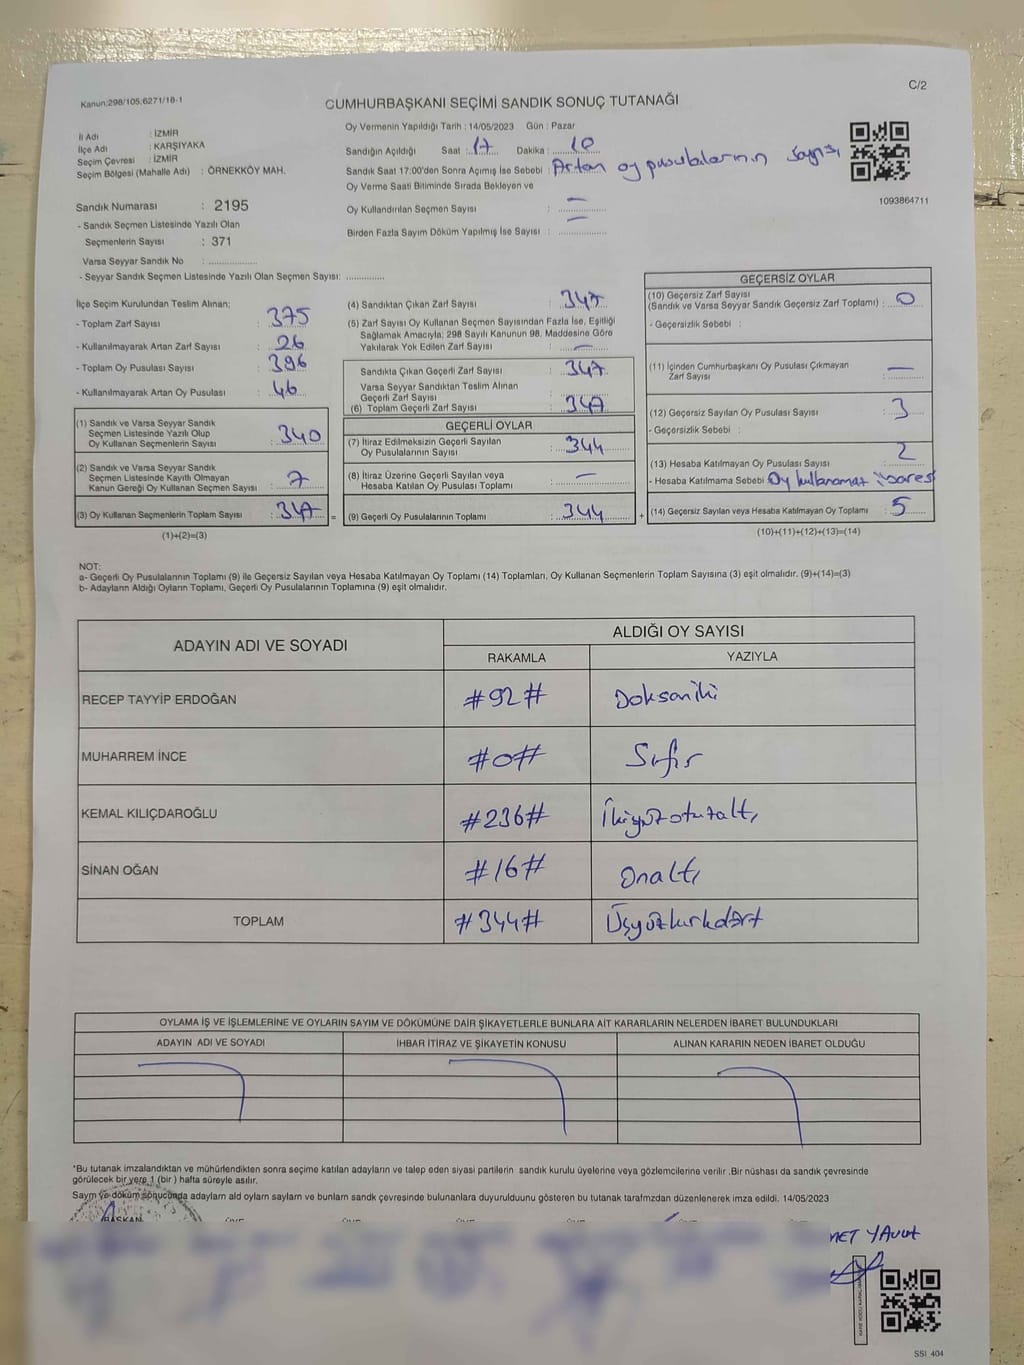 Kanun:298/105;6271/18-1
C/2
CUMHURBAŞKANI SEÇİMİ SANDIK SONUÇ TUTANAĞI
İl Adı : İZMİR
İlçe Adı : KARŞIYAKA
Seçim Çevresi : İZMİR
Seçim Bölgesi (Mahalle Adı) : ÖRNEKKÖY MAH.
Sandık Numarası : 2195
- Sandık Seçmen Listesinde Yazılı Olan
Seçmenlerin Sayısı : 371
Varsa Seyyar Sandık No : ..............
- Seyyar Sandık Seçmen Listesinde Yazılı Olan Seçmen Sayısı: ............
Oy Vermenin Yapıldığı Tarih : 14/05/2023 Gün : Pazar
Sandığın Açıldığı Saat : 17 Dakika : 10
Sandık Saat 17:00'den Sonra Açımış İse Sebebi : Artan oy pusulalarının sayısı
Oy Verme Saati Bitiminde Sırada Bekleyen ve
Oy Kullandırılan Seçmen Sayısı : —
Birden Fazla Sayım Döküm Yapılmış İse Sayısı : —
1093864711
İlçe Seçim Kurulundan Teslim Alınan;
- Toplam Zarf Sayısı : 375
- Kullanılmayarak Artan Zarf Sayısı : 26
- Toplam Oy Pusulası Sayısı : 396
- Kullanılmayarak Artan Oy Pusulası : 46
(1) Sandık ve Varsa Seyyar Sandık
Seçmen Listesinde Yazılı Olup
Oy Kullanan Seçmenlerin Sayısı : 340
(2) Sandık ve Varsa Seyyar Sandık
Seçmen Listesinde Kayıtlı Olmayan
Kanun Gereği Oy Kullanan Seçmen Sayısı : 7
(3) Oy Kullanan Seçmenlerin Toplam Sayısı : 347 =
(1)+(2)=(3)
(4) Sandıktan Çıkan Zarf Sayısı : 347
(5) Zarf Sayısı Oy Kullanan Seçmen Sayısından Fazla İse, Eşitliği
Sağlamak Amacıyla; 298 Sayılı Kanunun 98. Maddesine Göre
Yakılarak Yok Edilen Zarf Sayısı : —
Sandıkta Çıkan Geçerli Zarf Sayısı : 347
Varsa Seyyar Sandıktan Teslim Alınan
Geçerli Zarf Sayısı :
(6) Toplam Geçerli Zarf Sayısı : 347
GEÇERLİ OYLAR
(7) İtiraz Edilmeksizin Geçerli Sayılan
Oy Pusulalarının Sayısı : 344
(8) İtiraz Üzerine Geçerli Sayılan veya
Hesaba Katılan Oy Pusulası Toplamı : —
(9) Geçerli Oy Pusulalarının Toplamı : 344 +
GEÇERSİZ OYLAR
(10) Geçersiz Zarf Sayısı
(Sandık ve Varsa Seyyar Sandık Geçersiz Zarf Toplamı) : 0
- Geçersizlik Sebebi :
(11) İçinden Cumhurbaşkanı Oy Pusulası Çıkmayan
Zarf Sayısı : —
(12) Geçersiz Sayılan Oy Pusulası Sayısı : 3
- Geçersizlik Sebebi :
(13) Hesaba Katılmayan Oy Pusulası Sayısı : 2
- Hesaba Katılmama Sebebi Oy kullanamaz ibaresi
(14) Geçersiz Sayılan veya Hesaba Katılmayan Oy Toplamı : 5
(10)+(11)+(12)+(13)=(14)
NOT:
a- Geçerli Oy Pusulalarının Toplamı (9) ile Geçersiz Sayılan veya Hesaba Katılmayan Oy Toplamı (14) Toplamları, Oy Kullanan Seçmenlerin Toplam Sayısına (3) eşit olmalıdır. (9)+(14)=(3)
b- Adayların Aldığı Oyların Toplamı, Geçerli Oy Pusulalarının Toplamına (9) eşit olmalıdır.
ADAYIN ADI VE SOYADI
ALDIĞI OY SAYISI
RAKAMLA YAZIYLA
RECEP TAYYİP ERDOĞAN #92# Doksaniki
MUHARREM İNCE #0# Sıfır
KEMAL KILIÇDAROĞLU #236# İkiyüzotuzaltı
SİNAN OĞAN #16# Onaltı
TOPLAM #344# Üçyüzkırkdört
OYLAMA İŞ VE İŞLEMLERİNE VE OYLARIN SAYIM VE DÖKÜMÜNE DAİR ŞİKAYETLERLE BUNLARA AİT KARARLARIN NELERDEN İBARET BULUNDUKLARI
ADAYIN ADI VE SOYADI İHBAR İTİRAZ VE ŞİKAYETİN KONUSU ALINAN KARARIN NEDEN İBARET OLDUĞU
*Bu tutanak imzalandıktan ve mühürlendikten sonra seçime katılan adayların ve talep eden siyasi partilerin sandık kurulu üyelerine veya gözlemcilerine verilir .Bir nüshası da sandık çevresinde
görülecek bir yere 1 (bir ) hafta süreyle asılır.
Sayım ve döküm sonucunda adaylarn ald oylarn saylarn ve bunlarn sandk çevresinde bulunanlara duyurulduunu gösteren bu tutanak tarafmzdan düzenlenerek imza edildi. 14/05/2023
BAŞKAN
MET YAVUZ
SSI 404